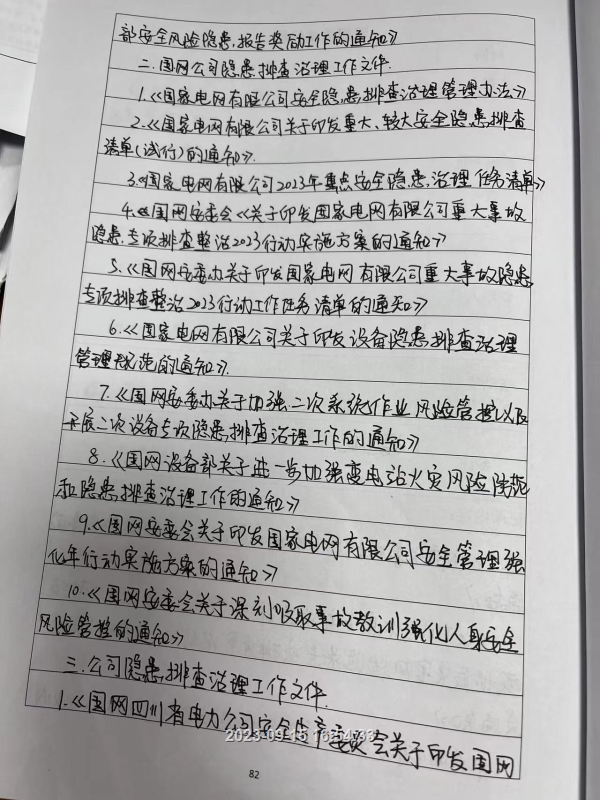 部安全风险隐患,报告奖励工作的通知》
二.国网公司隐患排查治理工作文件.
1.《国家电网有限公司安全隐患排查治理管理办法》
2.《国家电网有限公司关于印发重大、较大安全隐患排查
清单(试行)的通知》.
3.《国家电网有限公司2023年重点安全隐患治理任务清单》
4.《国网安委会《关于印发国家电网有限公司重大事故
隐患专项排查整治2023行动实施方案的通知》
5.《国网安委办关于印发国家电网有限公司重大事故隐患
专项排查整治2023行动工作任务清单的通知》
6.《国家电网有限公司关于印发设备隐患排查治理
管理规范的通知》.
7.《国网安委办关于加强二次系统作业风险管控以及
开展二次设备专项隐患排查治理工作的通知》
8.《国网设备部关于进一步加强变电站火灾风险防范
和隐患排查治理工作的通知》
9.《国网安委会关于印发国家电网有限公司安全管理强
化年行动实施方案的通知》
10.《国网安委会关于深刻吸取事故教训强化人身安全
风险管控的通知》
三.公司隐患排查治理工作文件.
1.《国网四川省电力公司安全生产委员会关于印发国网
2023 09 15
82